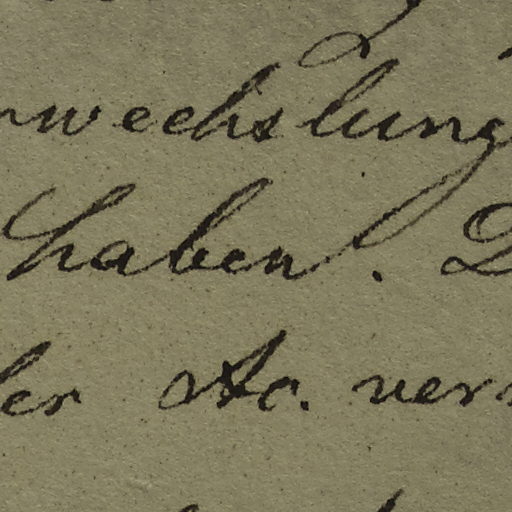 rwechslung
haben. D
ler Ac. ver